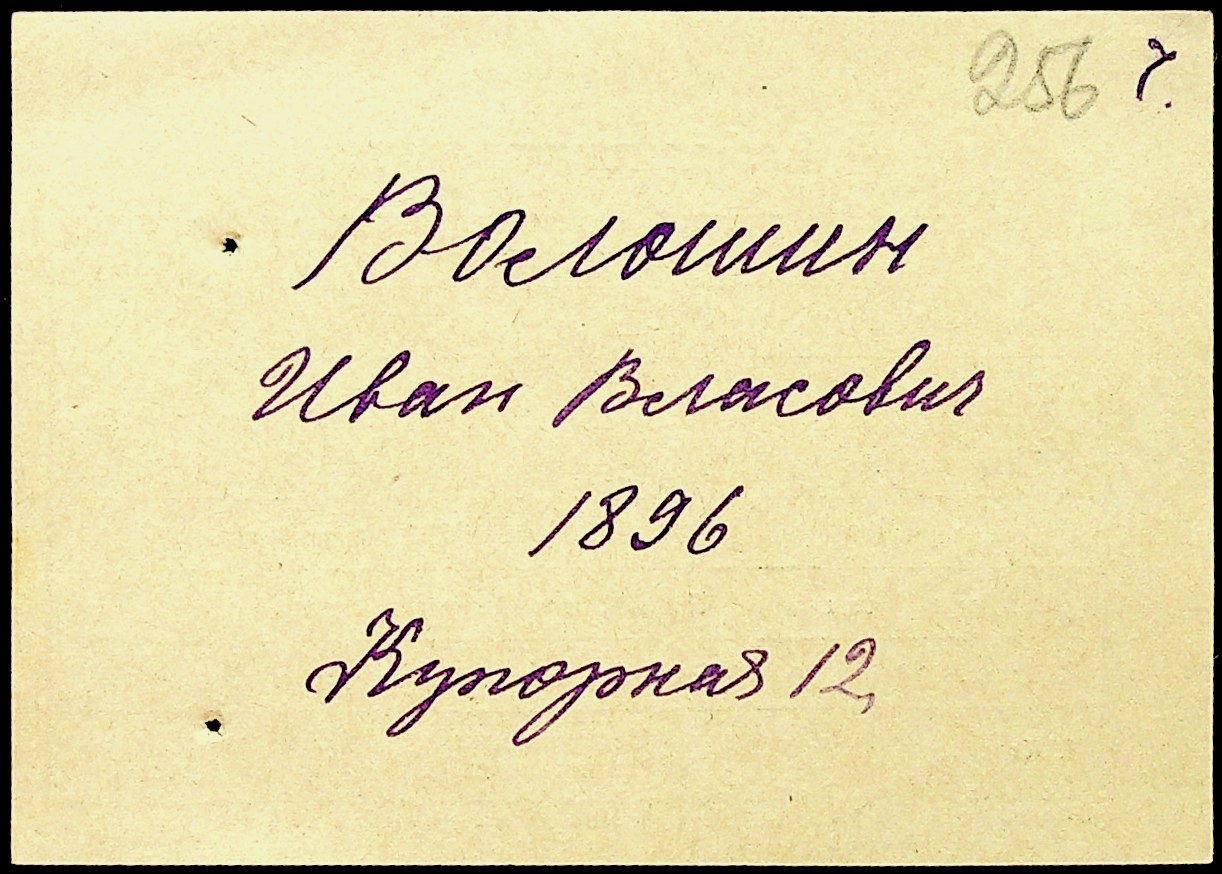 256 г.
Волошин
Иван Власович
1896
Купорная 12,